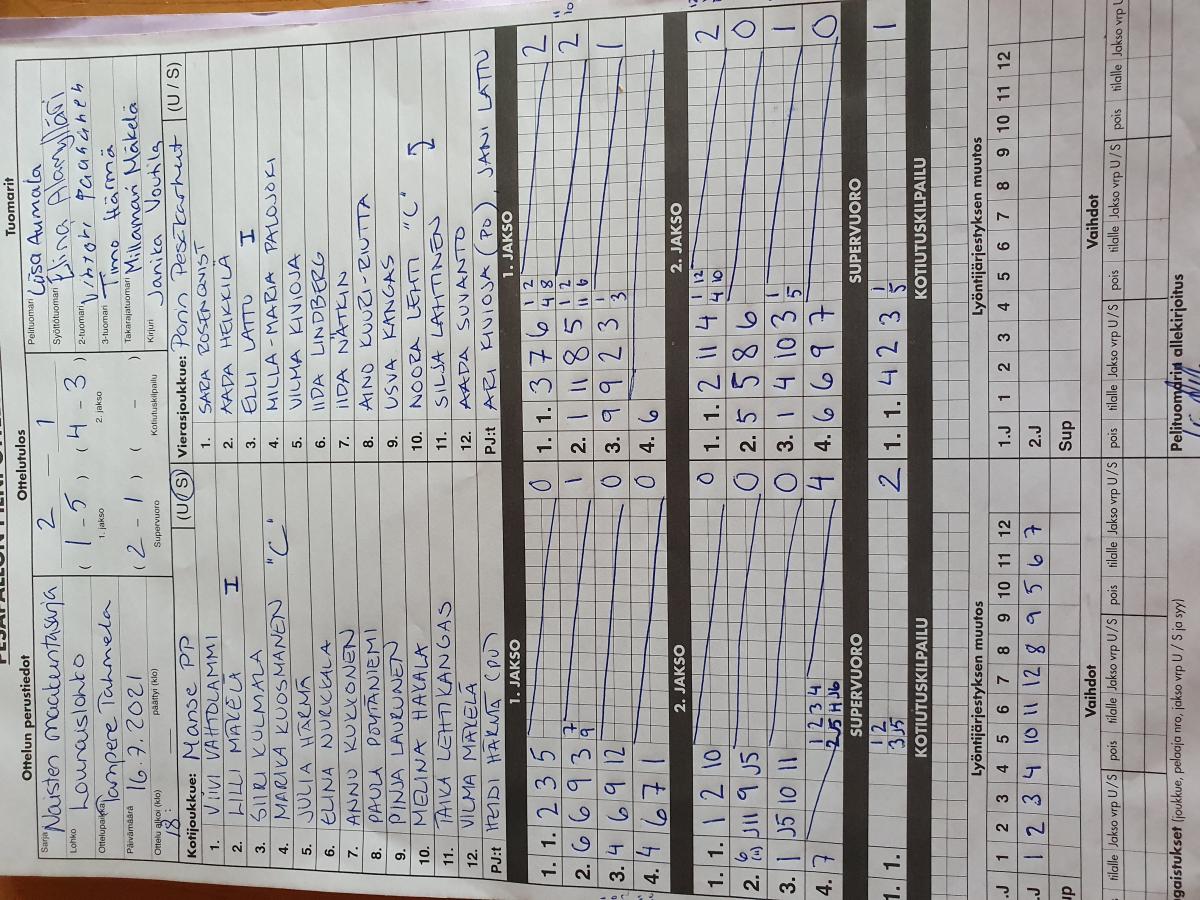 Ottelun perustiedot
Sarja Naisten maakuntasarja
Lohko Lounaislohko
Ottelupaikka Tampere Tahmela
Päivämäärä 16.7.2021
Ottelu alkoi (klo) 18 : päättyi (klo)
Ottelutulos
2 — 1
( 1 - 5 ) ( 4 - 3 )
1. jakso 2. jakso
( 2 - 1 ) ( - )
Supervuoro Kotiutuskilpailu
Tuomarit
Pelituomari Liisa Aumala
Syöttötuomari Elina Alamylläri
2-tuomari
3-tuomari Timo Härmä
Takarajatuomari Millamari Mäkelä
Kirjuri Janika Voutila
Kotijoukkue: Manse PP (U / S)
1. VIIVI VAHTOLAMMI
2. LILLI MÄKELÄ I
3. SIIRI KULMALA
4. MARIKA KUOSMANEN "C"
5. JULIA HÄRMÄ
6. ELINA NURKKALA
7. ANNU KUKKONEN
8. PAULA PÖYTÄNIEMI
9. PINJA LAURUNEN
10. MELINA HAKALA
11. TAIKA LEHTIKANGAS
12. VILMA MÄKELÄ
PJ:t HEIDI HÄRMÄ (PJ)
Vierasjoukkue: Porin Pesäkarhut (U / S)
1. SARA ROSENQVIST
2. AADA HEIKKILÄ
3. ELLI LATTU I
4. MILLA-MARIA PALOJOKI
5. VILMA KUIOJA
6. IIDA LINDBERG
7. IIDA NÄTKIN
8. AINO KUURI-RIUTTA
9. USVA KANGAS
10. NOORA LEHTI "C"
11. SILJA LAHTINEN
12. AADA SUVANTO
PJ:t ARI KUIOJA (PJ), JANI LATTU
1. JAKSO
1. 1. 2 3 5 0
2. 6 6 9 3 7 9 1
3. 4 6 9 12 0
4. 4 6 7 1 0
1. JAKSO
1. 1. 3 7 6 1 2 4 8 2
2. 1 11 8 5 1 2 11 6 2
3. 9 9 2 3 1 3 1
4. 6
2. JAKSO
1. 1. 1 2 10 0
2. 6 J11 9 J5 0
3. 1 J5 10 11 0
4. 7 1 2 3 4 4
2. JAKSO
1. 1. 2 11 4 1 12 4 10 2
2. 5 5 8 6 0
3. 1 4 10 3 1 5 1
4. 6 6 9 7 0
SUPERVUORO
1. 1. 1 2 3 J5 2
SUPERVUORO
1. 1. 4 2 3 1 5 1
KOTIUTUSKILPAILU
KOTIUTUSKILPAILU
Lyöntijärjestyksen muutos
.J 1 2 3 4 5 6 7 8 9 10 11 12
.J 1 2 3 4 10 11 12 8 9 5 6 7
up
Lyöntijärjestyksen muutos
1.J 1 2 3 4 5 6 7 8 9 10 11 12
2.J
Sup
Vaihdot
tilalle Jakso vrp U / S pois tilalle Jakso vrp U / S pois tilalle Jakso vrp U / S
Vaihdot
pois tilalle Jakso vrp U / S pois tilalle Jakso vrp U / S pois tilalle Jakso vrp U
gaistukset (joukkue, pelaaja nro, jakso vrp, U / S ja syy)
Pelituomarin allekirjoitus